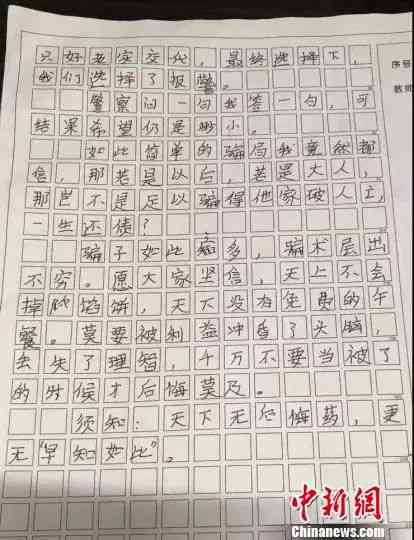 只好老实交代，最终选择下，
我们选择了报警。
警察问一句我答一句，可
结果希望仍是渺小。
如此简单的骗局我竟然都
信，那若是以后，若是大人，
那岂不是足以骗得他家破人亡，
一生还债？
骗子如此多，骗术层出
不穷。愿大家坚信，天上不会
掉馅饼，天下没有免费的午
餐。莫要被利益冲昏了头脑，
去失了理智，千万不要当被了
的时候才后悔莫及。
须知：天下无后悔药，更
无“早知如此”。
序号
教师
中新网
Chinanews.com